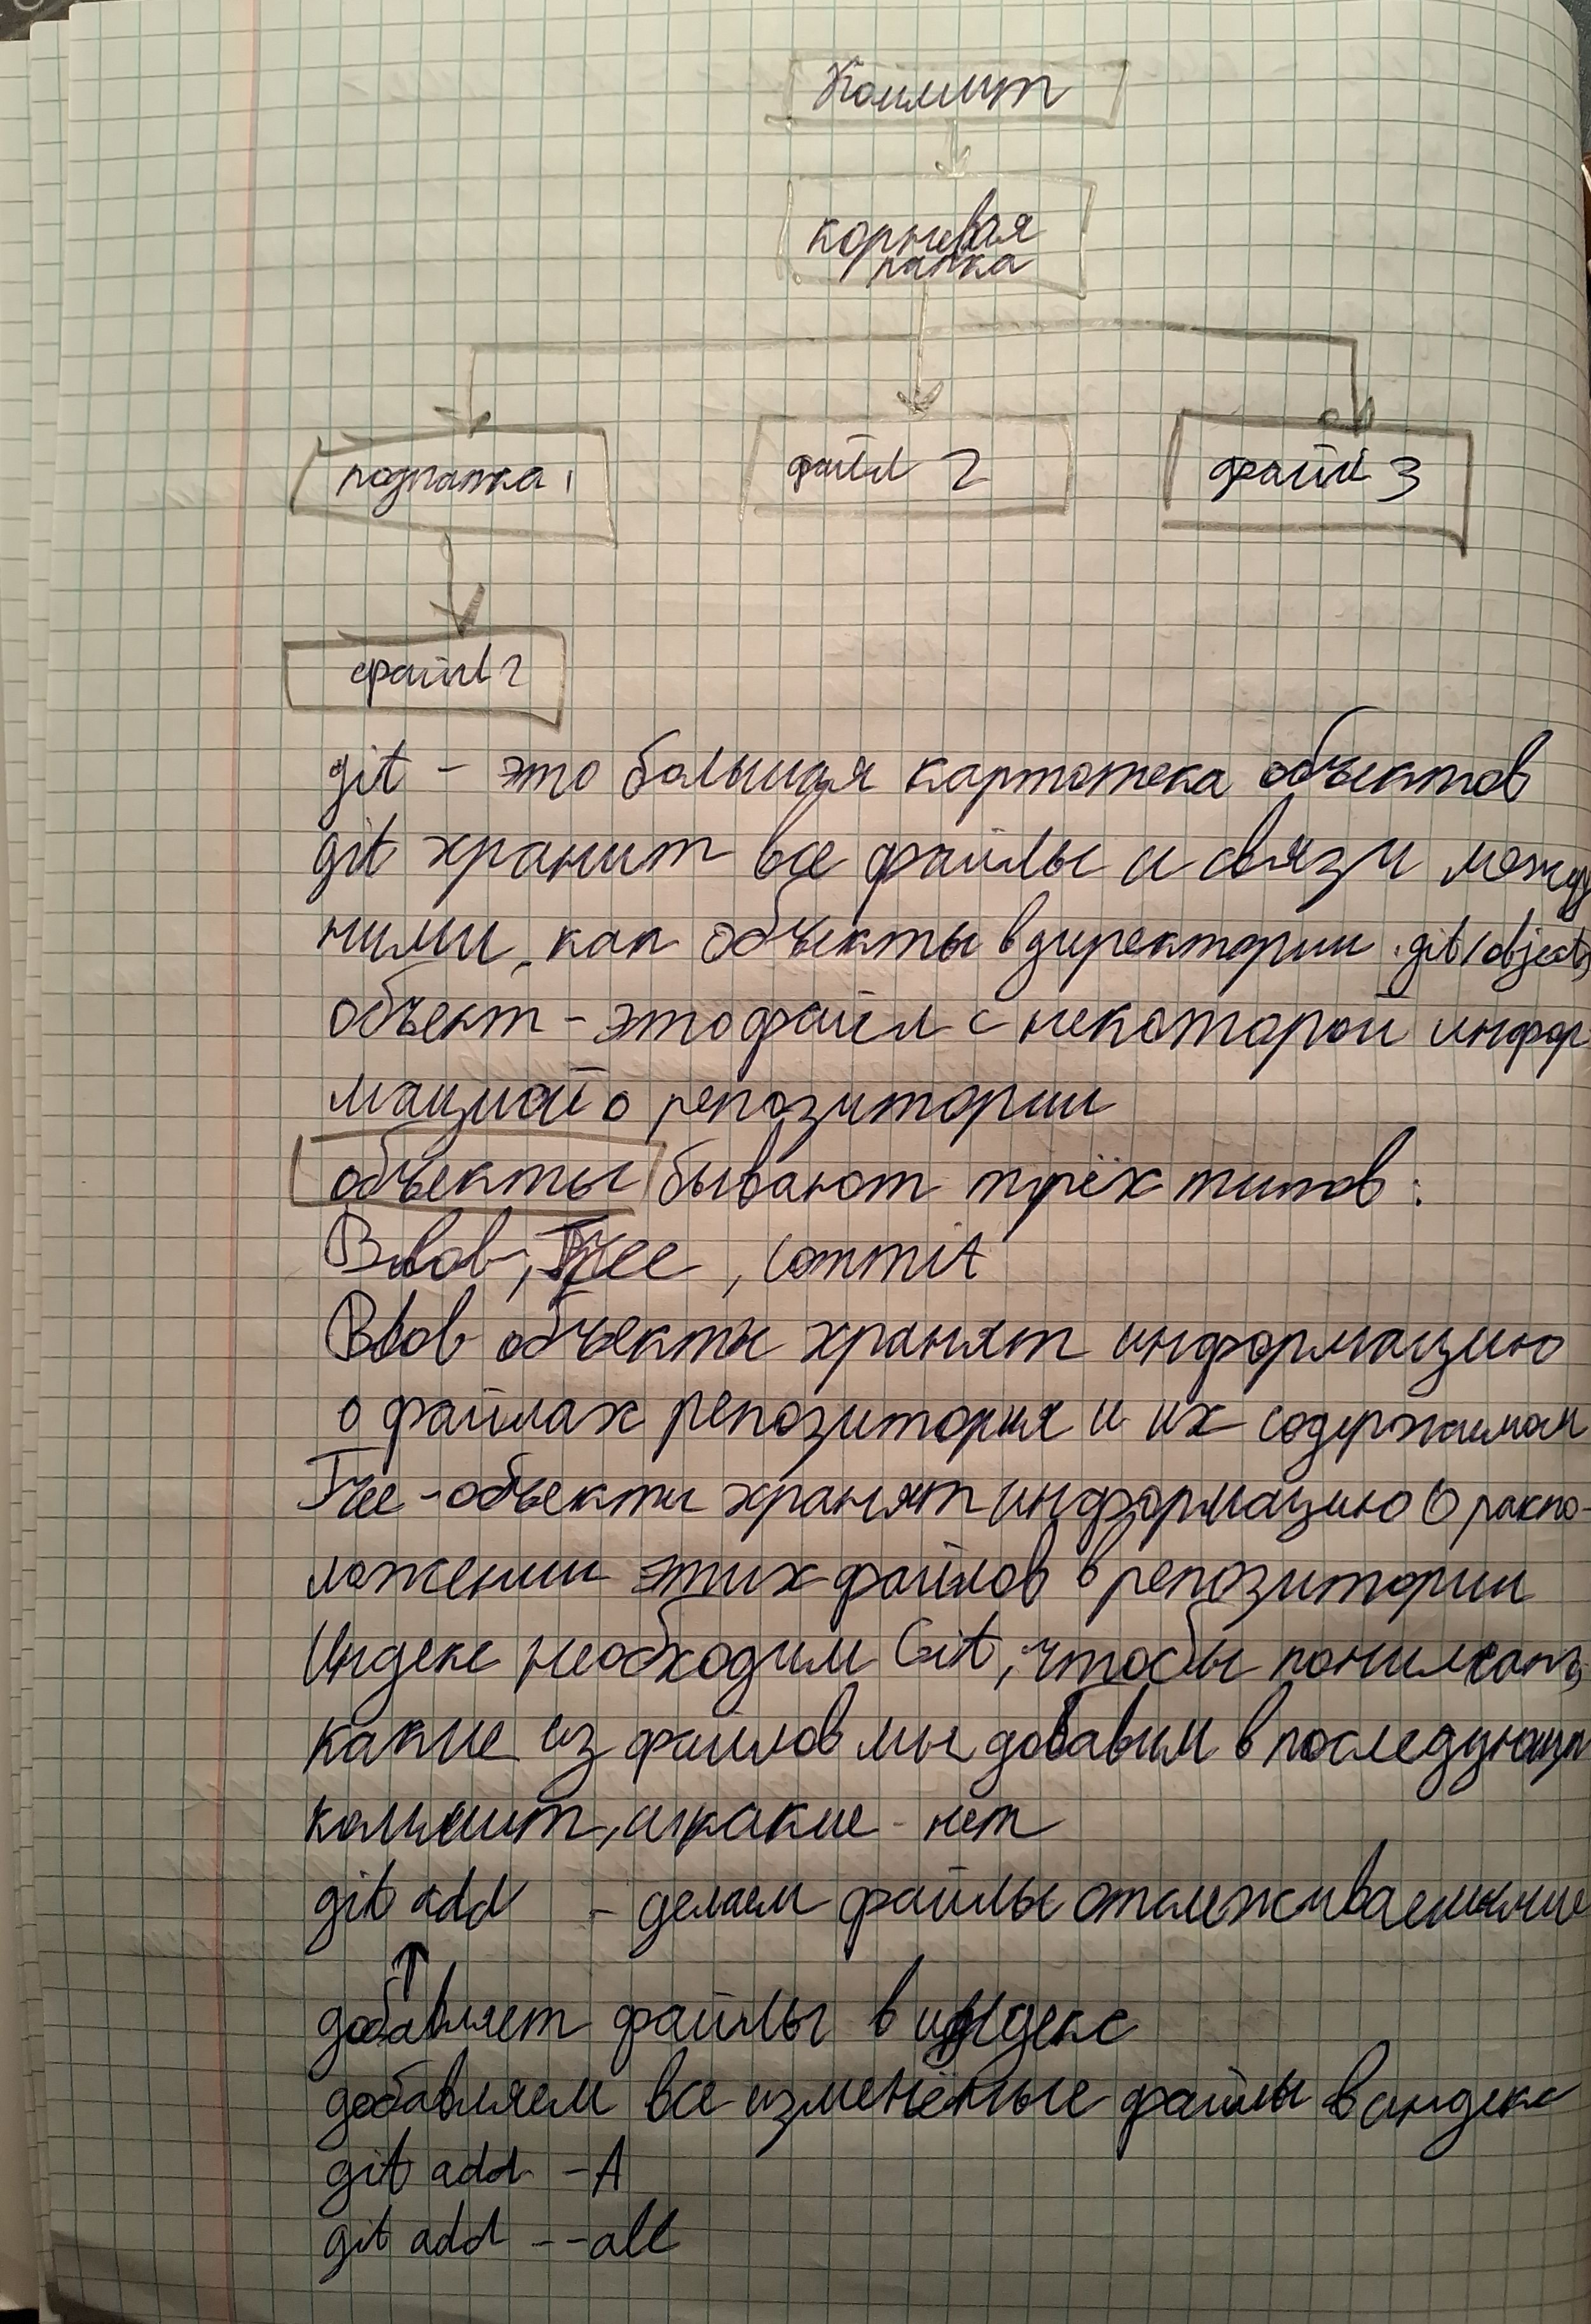 Коммит
корневая
папка
подпапка 1
файл 2
файл 3
файл
git - это большая картотека объектов
git хранит все файлы и связи между
ними, как объекты в директории .git/objects
объект - это файл с некоторой инфор
мацией о репозитории
объекты бывают трёх типов:
Blob, Tree, commit
Blob объекты хранят информацию
о файлах репозитория и их содержимом
Tree - объекты хранят информацию о распо-
ложении этих файлов в репозитории
Индекс необходим Git, чтобы понимать,
какие из файлов мы добавим в последующий
коммит, а какие - нет
git add - делаем файлы отслеживаемыми
добавляет файлы в индекс
добавляем все изменёные файлы в индекс
git add -A
git add --all